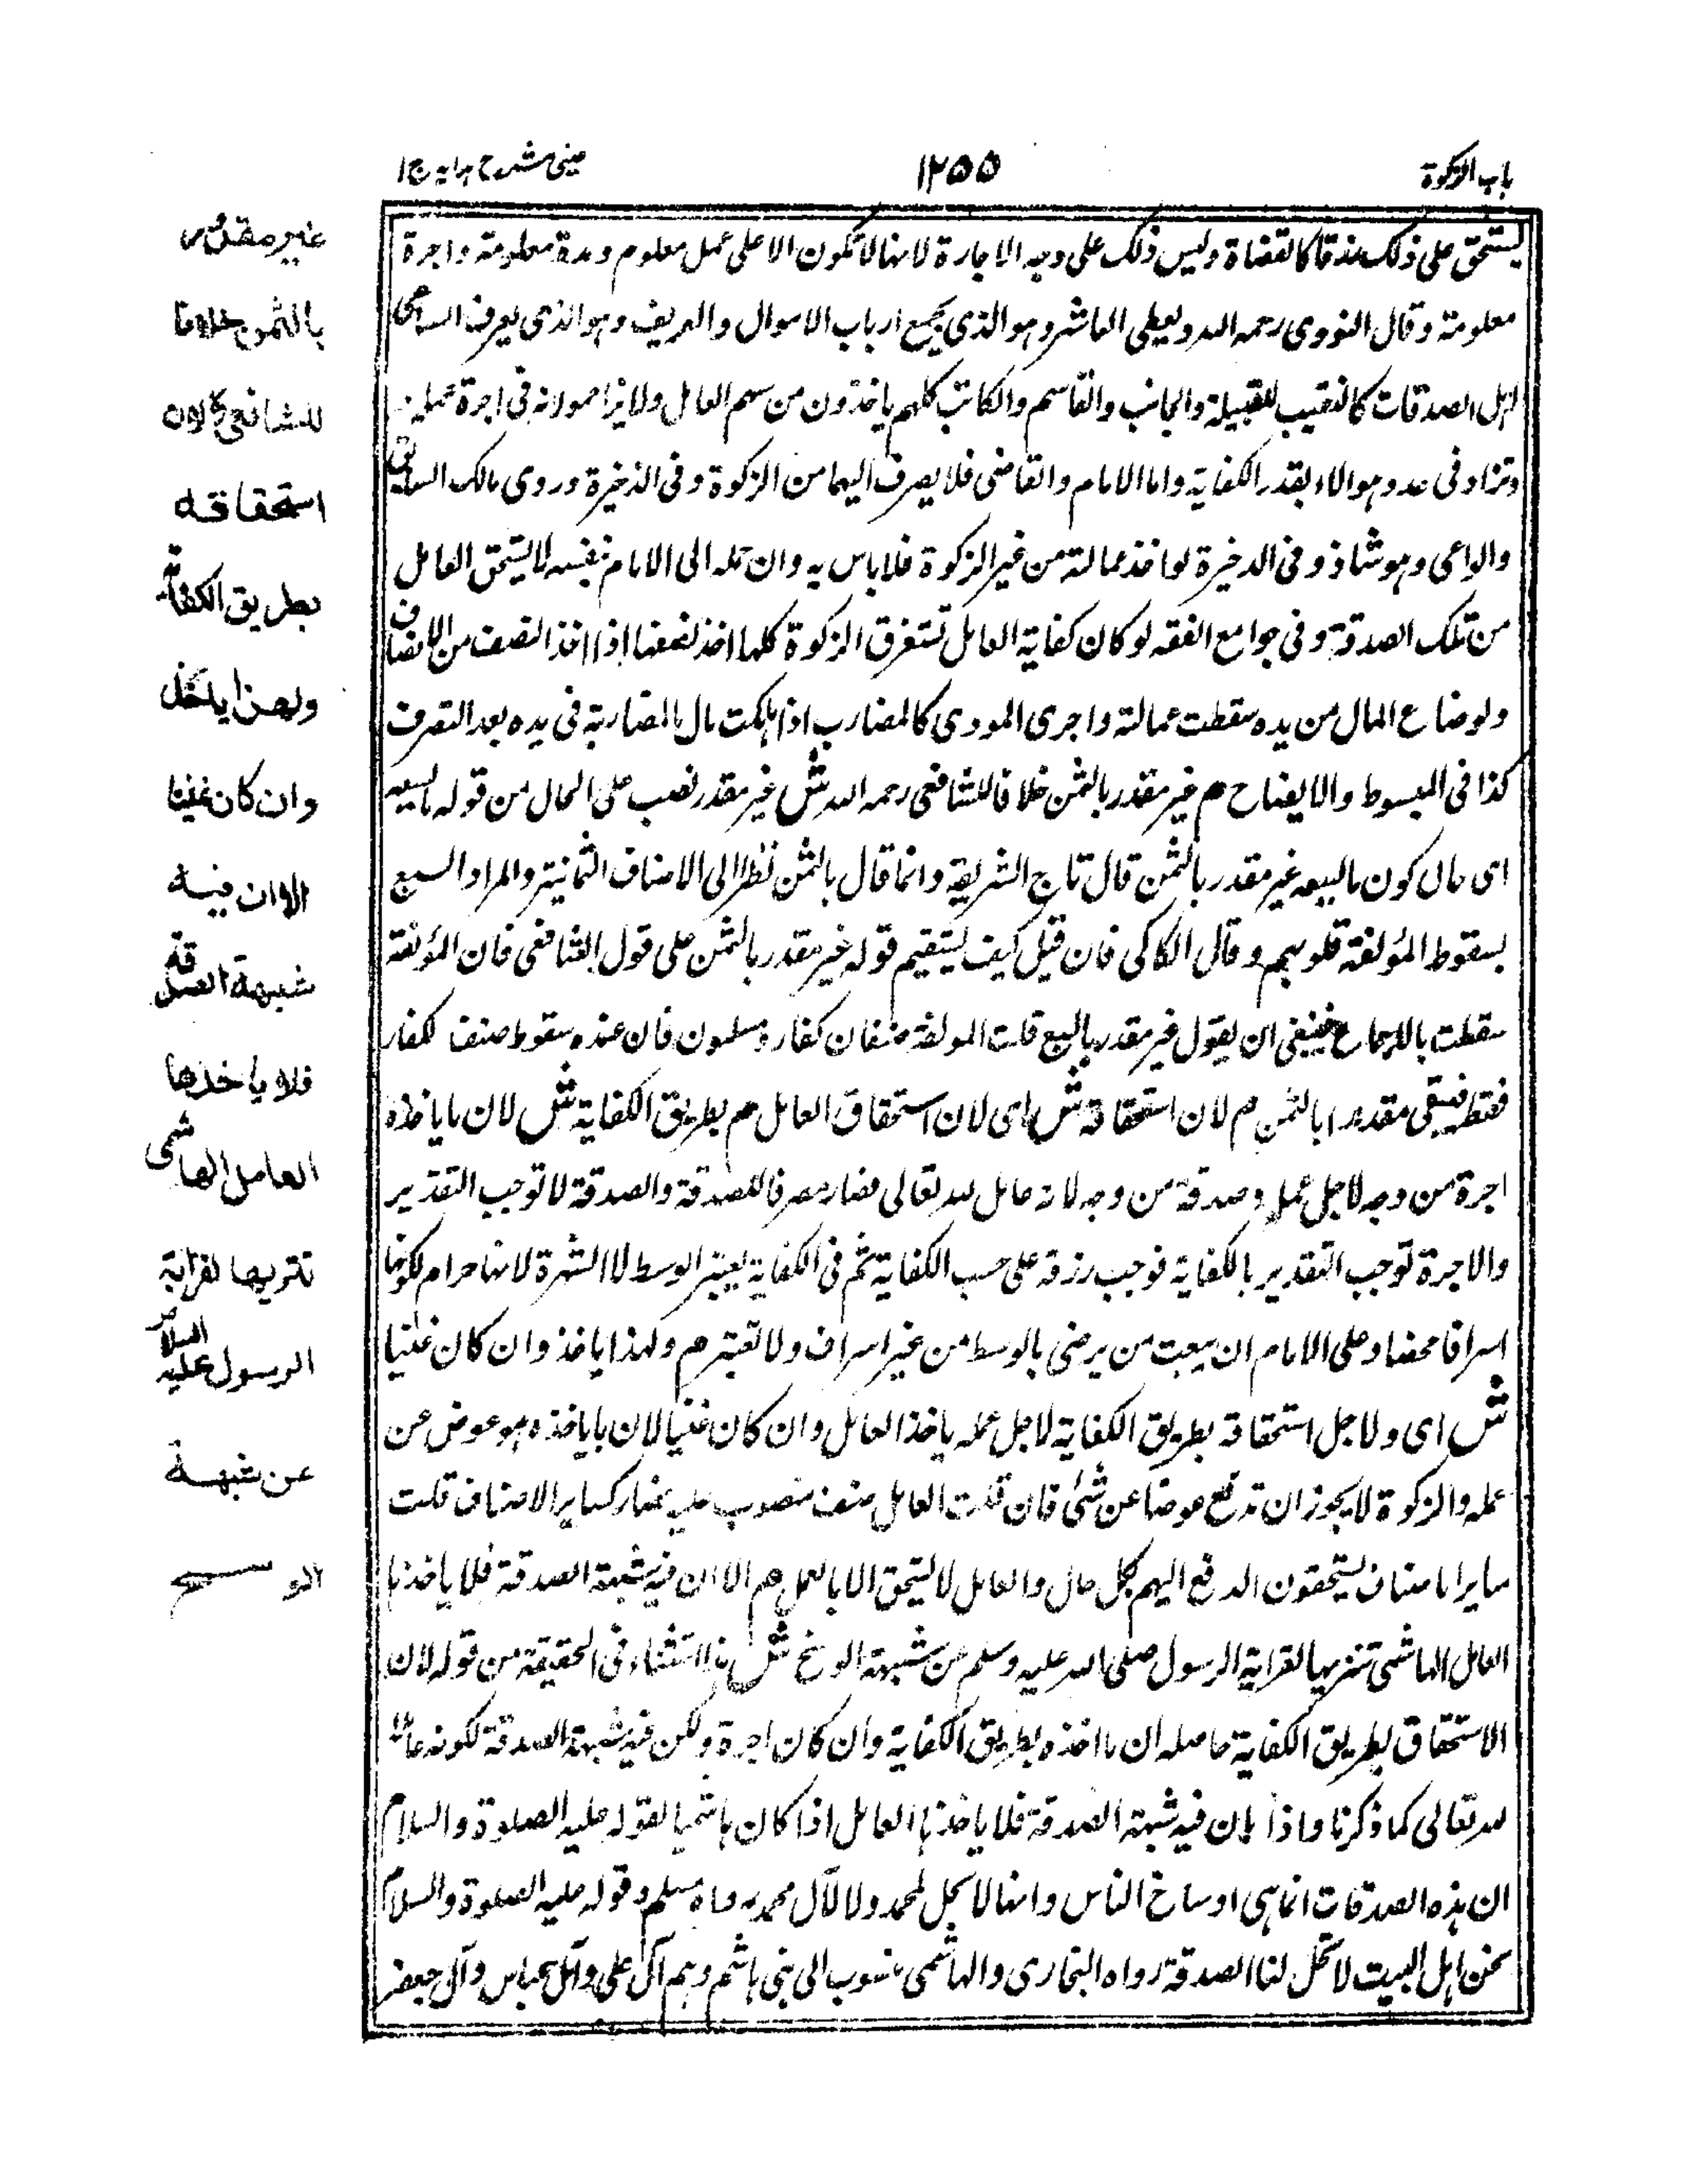 باب الزكوة
١٢٥٥
عينى شرح هدايه ج١
يستحق على ذلك رزقا كالقضاة وليس ذلك على وجه الاجارة لانها لا تكون الا على عمل معلوم ومدة معلومة واجرة
معلومة وقال النووى رحمه الله ويعطى العاشر وهو الذى يجمع ارباب الاموال والعريف وهو الذى يعرف الساعى
اهل الصدقات كالنقيب للقبيلة والحاسب والقاسم والكاتب كلهم ياخذون من سهم العامل ولا يزاحمونه فى اجرة عمله
وتزاد فى عدد هولاء بقدر الكفاية واما الامام والقاضى فلا يصرف اليهما من الزكوة وفى الذخيرة وروى مالك السائق
والراعى وهو شاذ وفى الذخيرة لو اخذ عمالته من غير الزكوة فلا باس به وان حمله الى الامام بنفسه لا يستحق العامل
من تلك الصدقة وفى جوامع الفقه لو كان كفاية العامل تستغرق الزكوة كلها اخذ نصفها اذا اخذ النصف من الانصاف
ولو ضاع المال من يده سقطت عمالته واجرى المودى كالمضارب اذا هلكت مال بالمضاربة فى يده بعد التصرف
كذا فى المبسوط والايضاح م غير مقدر بالثمن خلافا للشافعى رحمه الله ش غير مقدر نصب على الحال من قوله ما يسعه
اى حال كون ما يسعه غير مقدر بالثمن قال تاج الشريعة وانما قال بالثمن نظرا الى الاصناف الثمانية والمراد السبع
بسقوط المؤلفة قلوبهم وقال الكاكى فان قيل كيف يستقيم قوله غير مقدر بالثمن على قول الشافعى فان المؤلفة
سقطت بالاجماع فينبغى ان يقول غير مقدر بالسبع قلت المولفة صنفان كفار ومسلمون فان عنده سقوط صنف لكفار
فقط فيبقى مقدرا بالثمن م لان استحقاقه ش اى لان استحقاق العامل م بطريق الكفاية ش لان ما ياخذه
اجرة من وجه لاجل عمله وصدقة من وجه لانه عامل لله تعالى فصار مصرفا للصدقة والصدقة لا توجب التقدير
والاجرة توجب التقدير بالكفاية فوجب رزقه على حسب الكفاية ثم فى الكفاية يعتبر الوسط لا الشهرة لانها حرام لكونها
اسرافا محضا وعلى الامام ان يبعث من يرضى بالوسط من غير اسراف ولا تقتير م ولهذا ياخذ وان كان غنيا
ش اى ولاجل استحقاقه بطريق الكفاية لاجل عمله ياخذ العامل وان كان غنيا لان ما ياخذه هو عوض عن
عمله والزكوة لا يجوز ان تدفع عوضا عن شئ فان قلت العامل صنف منصوب عليه فصار كساير الاصناف قلت
ساير الاصناف يستحقون الدفع اليهم بكل حال والعامل لا يستحق الا بالعمل م الا ان فيه شبهة الصدقة فلا ياخذها
العامل الهاشمى تنزيها لقرابة الرسول صلى الله عليه وسلم عن شبهة الوسخ ش هذا استثناء فى الحقيقة من قوله لان
الاستحقاق بطريق الكفاية حاصله ان ما اخذه بطريق الكفاية وان كان اجرة ولكن فيه شبهة الصدقة لكونه عاملا
لله تعالى كما ذكرنا واذا كان فيه شبهة الصدقة فلا ياخذها العامل اذا كان هاشميا لقوله عليه الصلوة والسلام
ان هذه الصدقات انما هى اوساخ الناس وانها لا تحل لمحمد ولا لآل محمد رواه مسلم وقوله عليه الصلوة والسلام
نحن اهل البيت لا تحل لنا الصدقة رواه البخارى والهاشمى منسوب الى بنى هاشم وهم آل على وآل عباس وآل جعفر
غير مقدر
بالثمن خلافا
للشافعى لان
استحقاقه
بطريق الكفاية
ولهذا ياخذ
وان كان غنيا
الا ان فيه
شبهة الصدقة
فلا ياخذها
العامل الهاشمى
تنزيها لقرابة
الرسول عليه السلام
عن شبهة
الوسخ